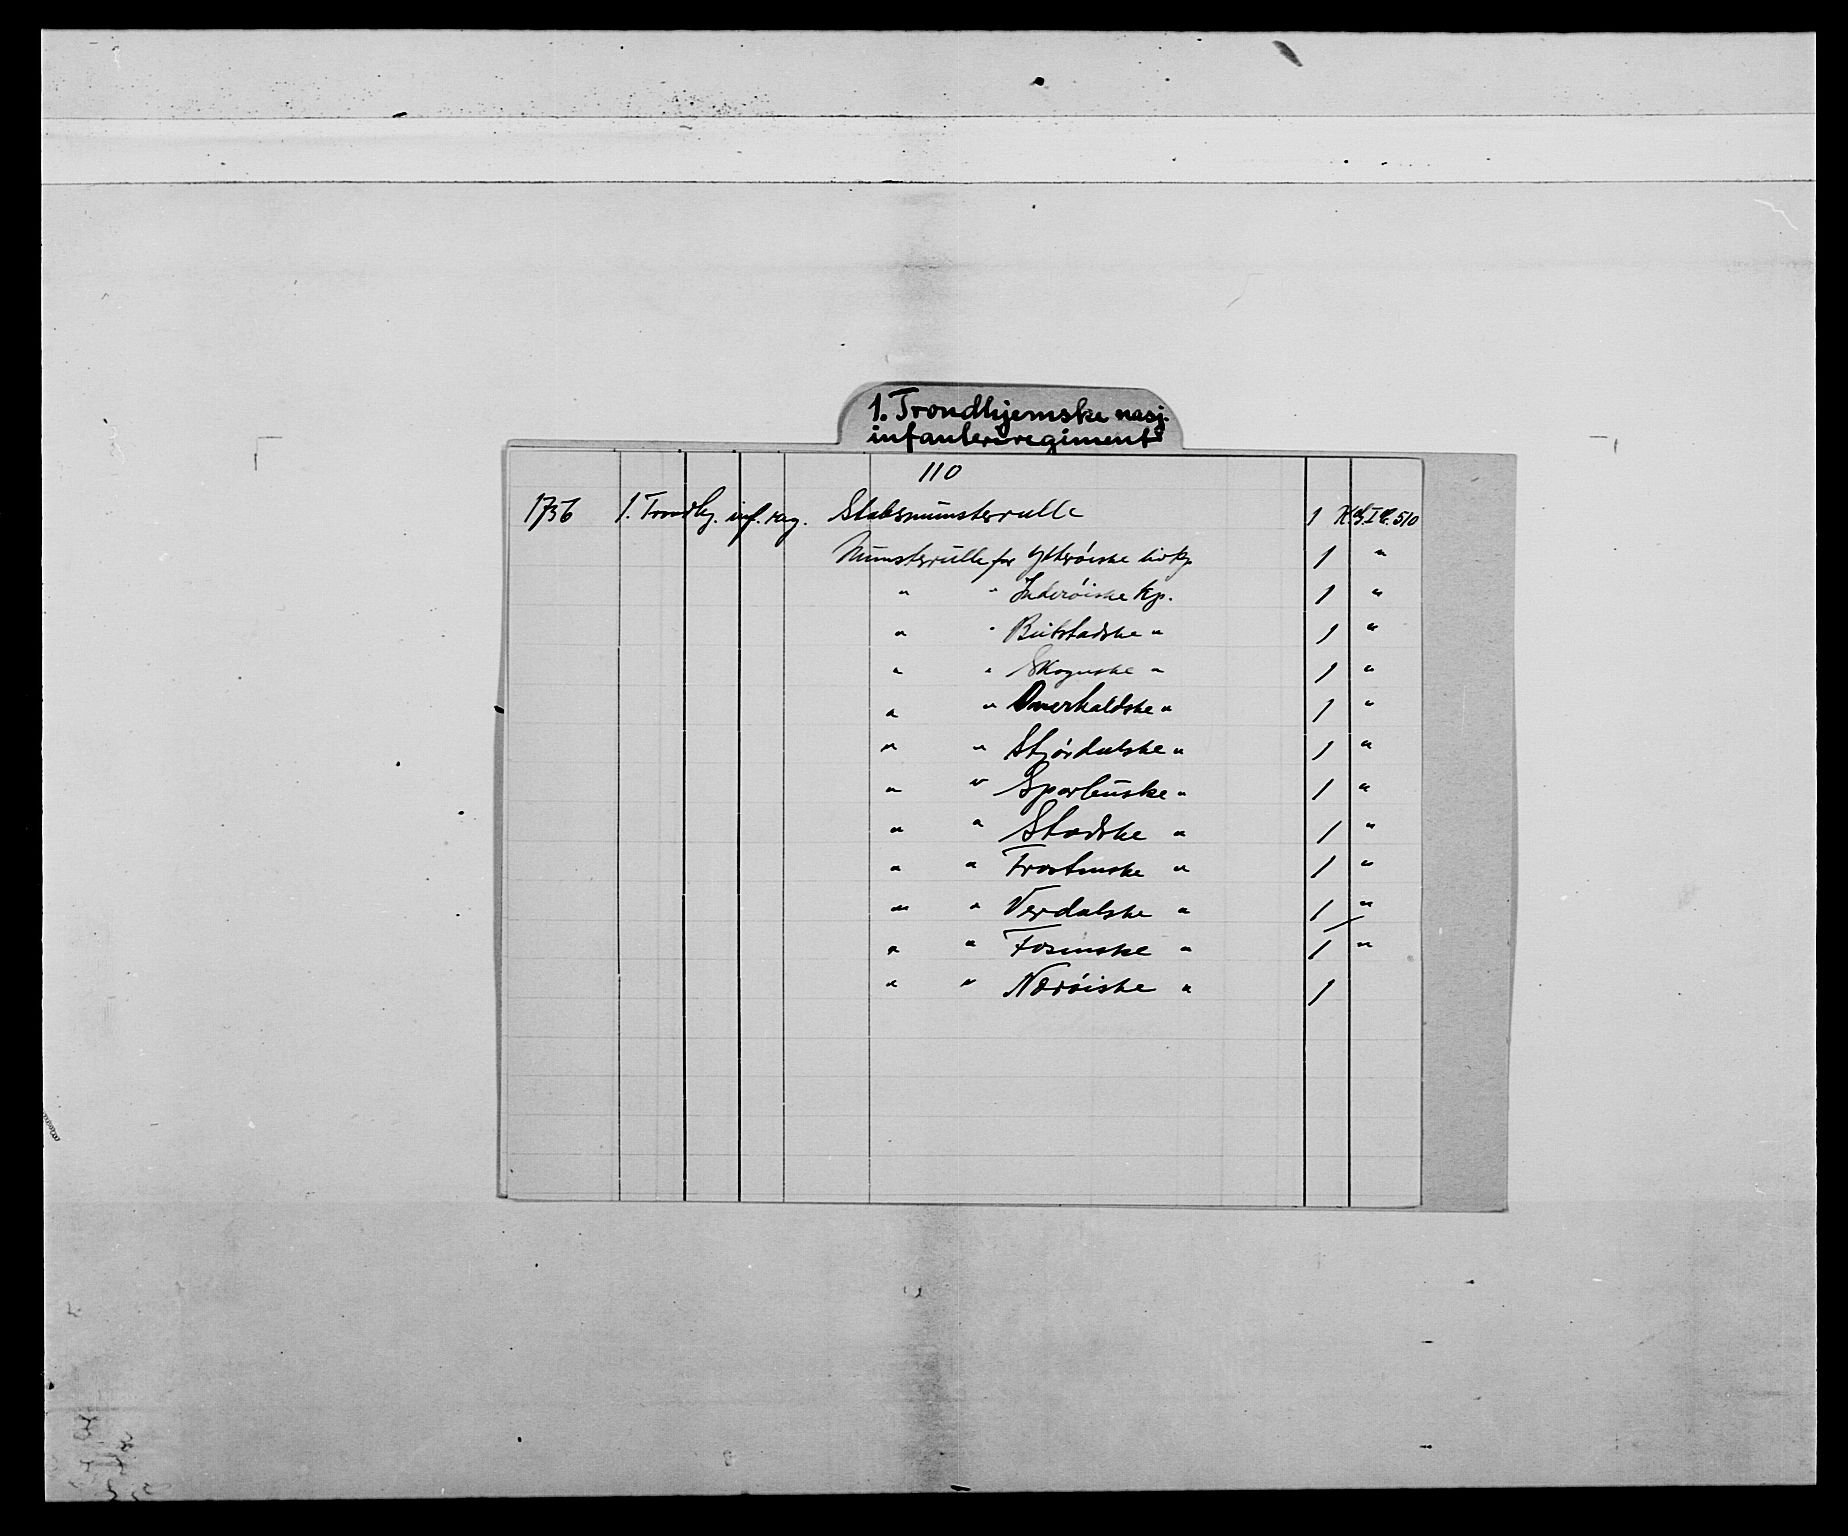 1. Trondhjemske nasj.
infanteriregiment
110
1756 1. Trondhj. inf. reg. Stabsmünsterrulle 1 510
Münsterrülle for Ytterøiske livkp 1 "
" " Inderøiske Kp. 1 "
" " Beitstadske " 1 "
" " Skognske " 1 "
" " Overhaldske " 1 "
" " Stjørdalske " 1 "
" " Sparbuske " 1 "
" " Stodske " 1 "
" " Frostenske " 1 "
" " Verdalske " 1 "
" " Fosenske " 1 "
" " Nærøiske " 1